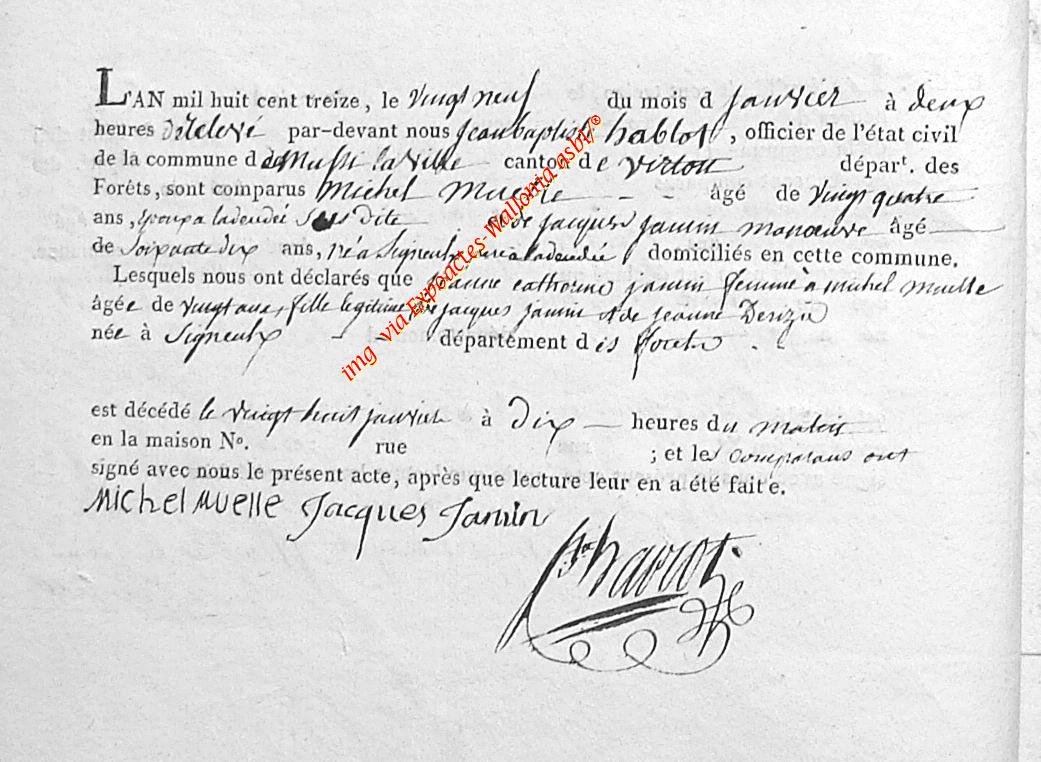 L'AN mil huit cent treize, le vingt neuf du mois d janvier à deux
heures de relevé par-devant nous jean baptiste hablot, officier de l'état civil
de la commune d de Mussi la ville canton de virton départ. des
Forêts, sont comparus Michel Muelle - - âgé de vingt quatre
ans, epoux a la decedée sus dite et de jacques jamin manoeuvre âgé
de soixante dix ans, né a Signeulx pere a la decedée domiciliés en cette commune.
Lesquels nous ont déclarés que jeanne catherine jamin femme à michel muelle
âgée de vingt ans, fille legitime de jacques jamin et de jeanne
née à Signeulx - - département des forets - -
est décédé le vingt huit janvier à dix heures du matin
en la maison No. rue ; et les comparans ont
signé avec nous le présent acte, après que lecture leur en a été faite.
Michel Muelle Jacques Jamin
hablot
img via Expoactes-Wallonia asbl/®